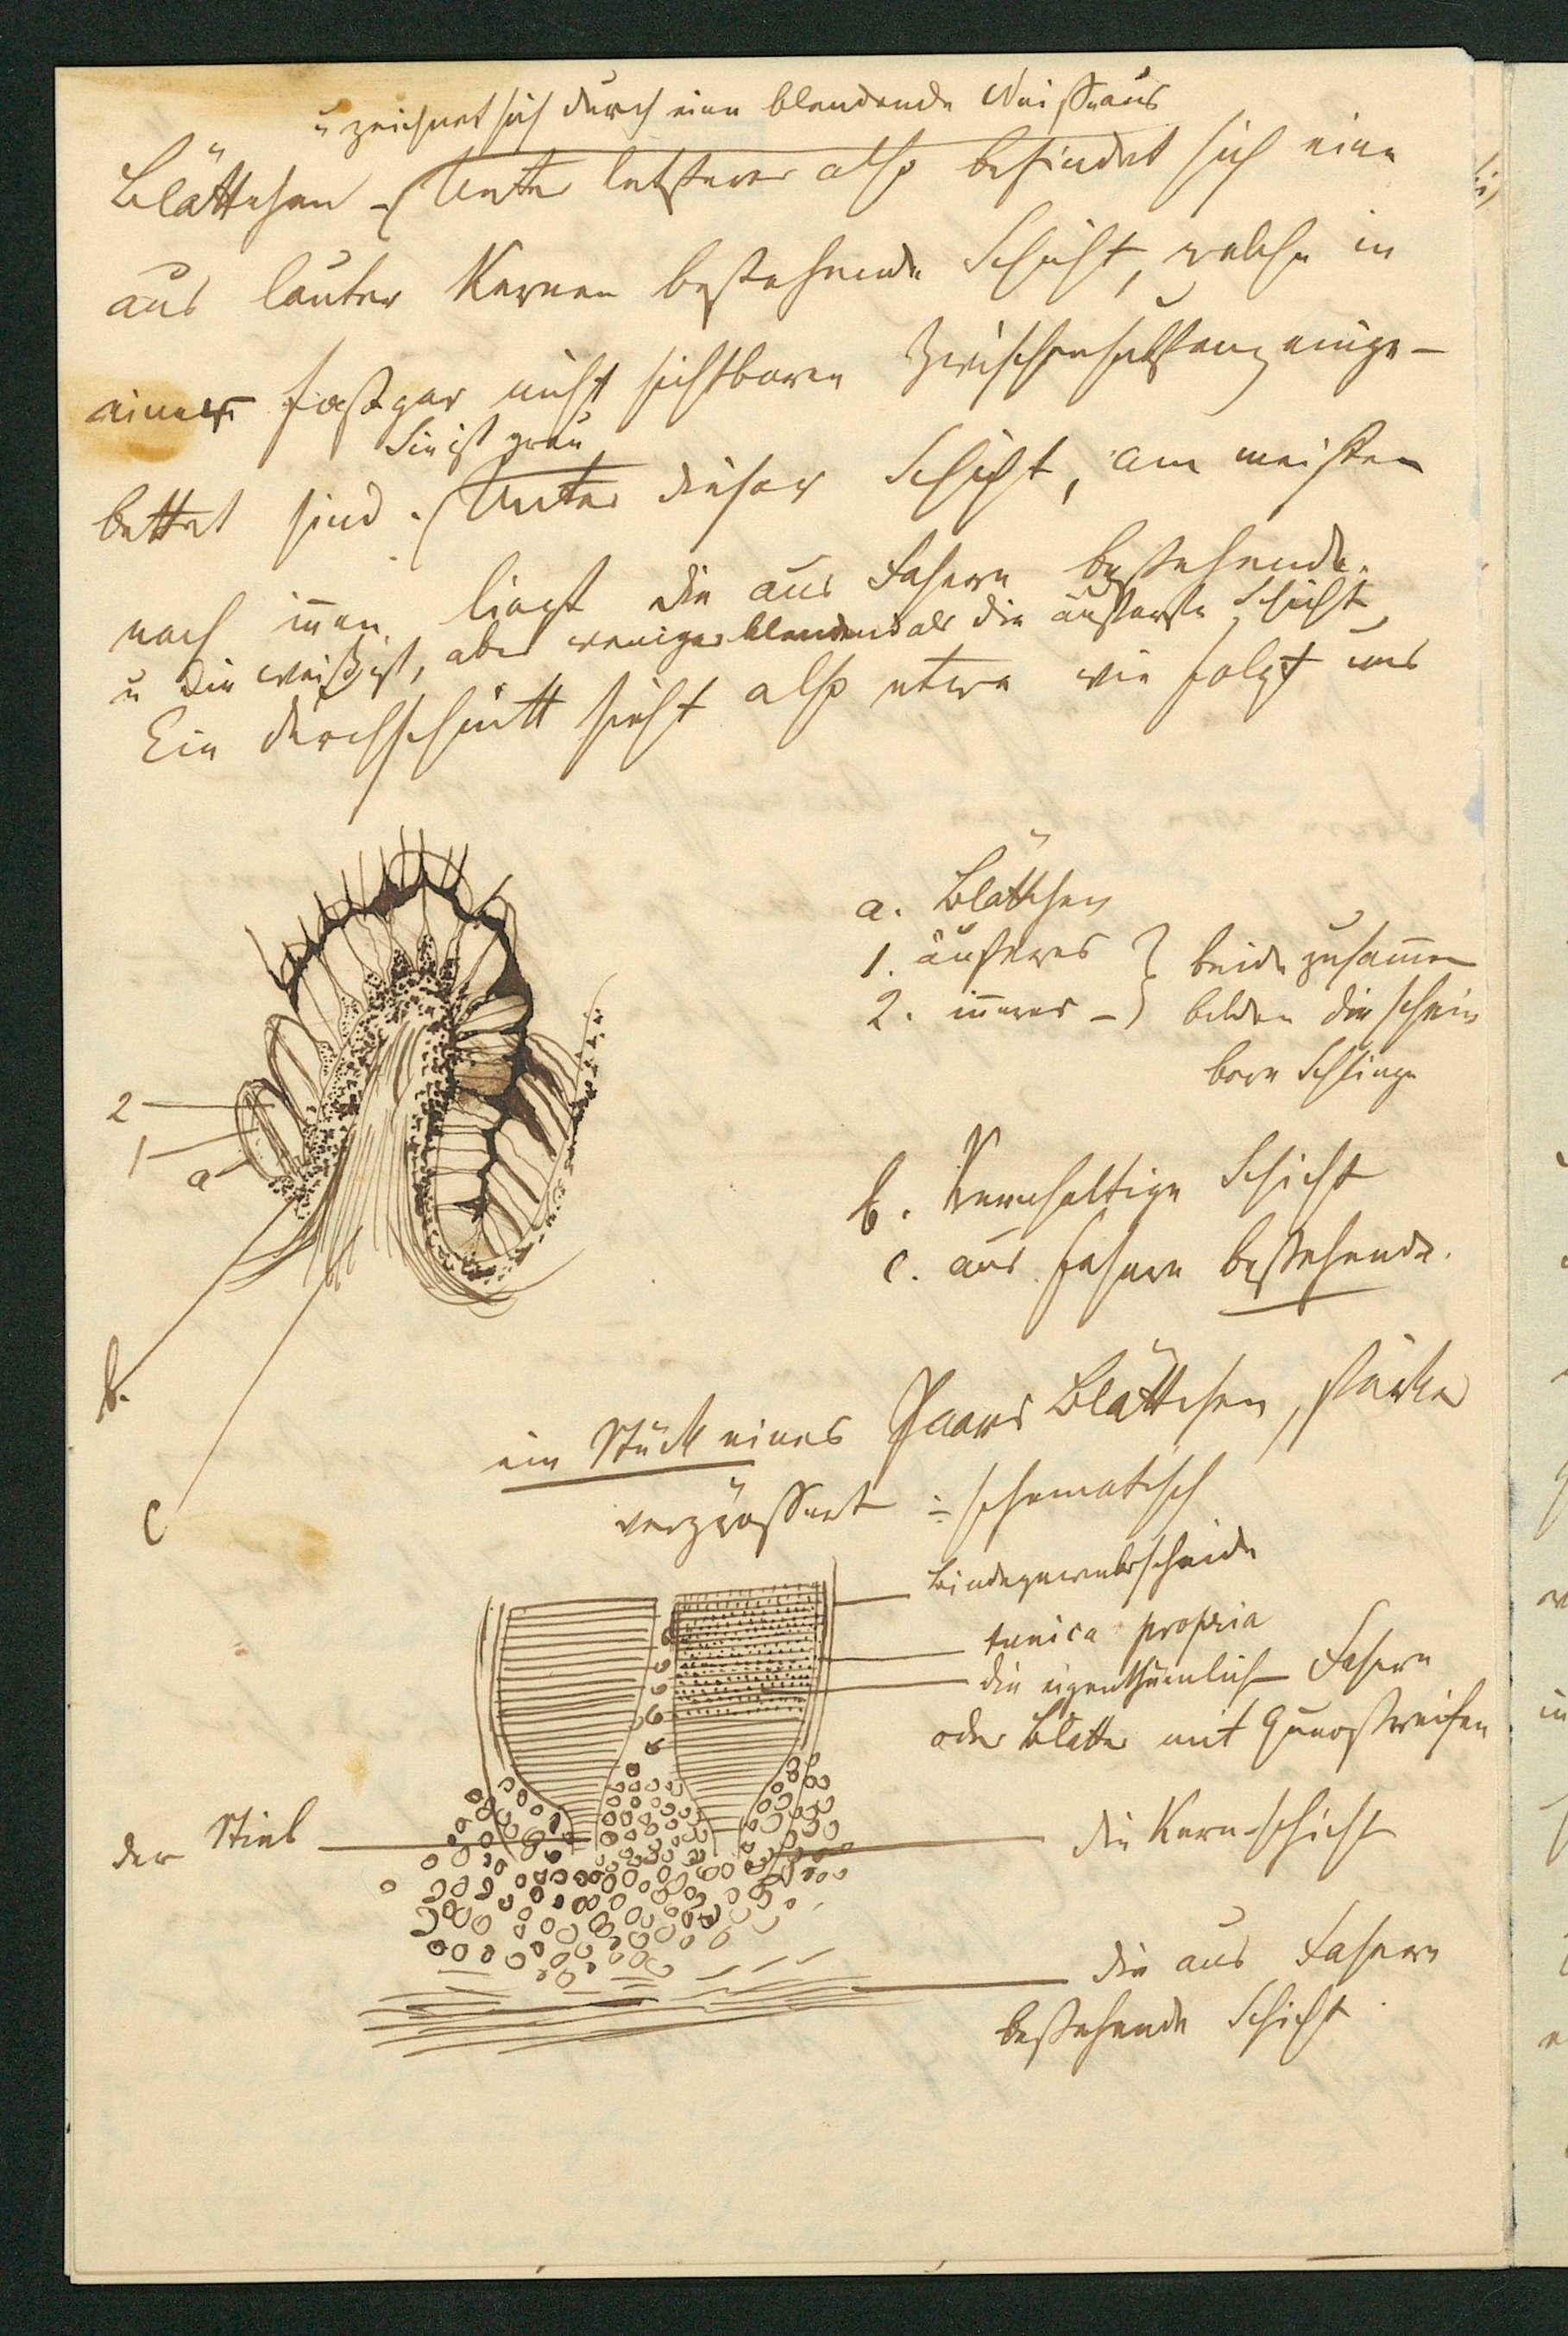 u zeichnet sich durch eine blendende Weiße aus
Blättchen – Unter letzterer also befindet sich eine
aus lauter Kernen bestehende Schicht, welche in
einer fast gar nicht sichtbaren Zwischensubstanz einge-
Sie ist grau
bettet sind. Unter dieser Schicht, am meisten
nach innen liegt die aus Fasern bestehende.
u die weiß ist, aber weniger blendend als die äußerste Schicht,
Ein Durchschnitt sieht also etwa wie folgt aus
a. Blättchen
1. äußeres } beide zusammen
2. inneres – } bilden die schein
bare Schlinge
2
1
a
b. Kernhaltige Schicht
c. aus Fasern bestehende.
b.
c
ein Stück eines Paars Blättchen, stärker
vergrössert – schematisch
Bindegewebsscheide
tunica propria
die eigenthümlich Fasern
oder Blätter mit Querstreifen
der Stiel
die Kernschicht
die aus Fasern
bestehende Schicht.